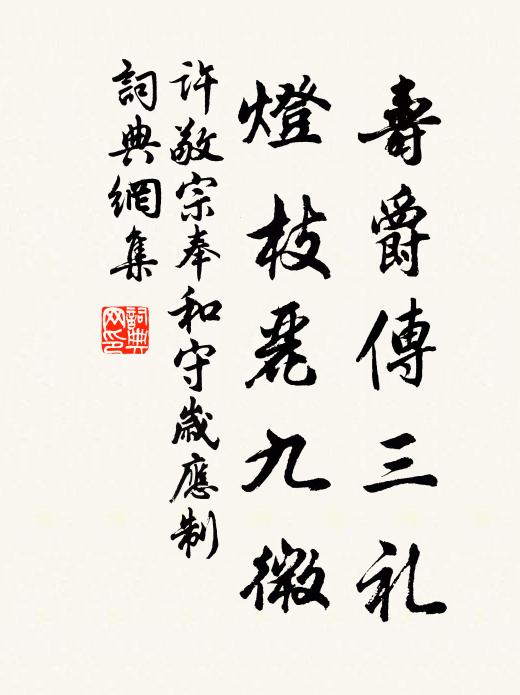 壽爵傳三礼
燈枝麗九微
許敬宗奉和守歲應制
詞典網集
詞典网印